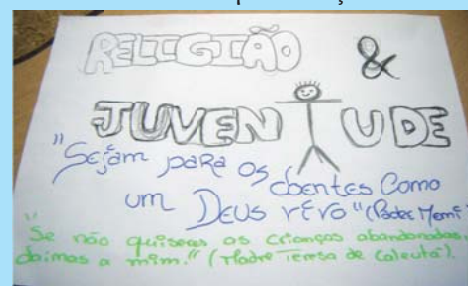 RELIGIÃO &
JUVENTUDE
"Sejam para os doentes como
um Deus vivo" (Padre
"Se não quiseres as crianças abandonadas,
daimas a mim." (Madre Teresa de Calcutá).